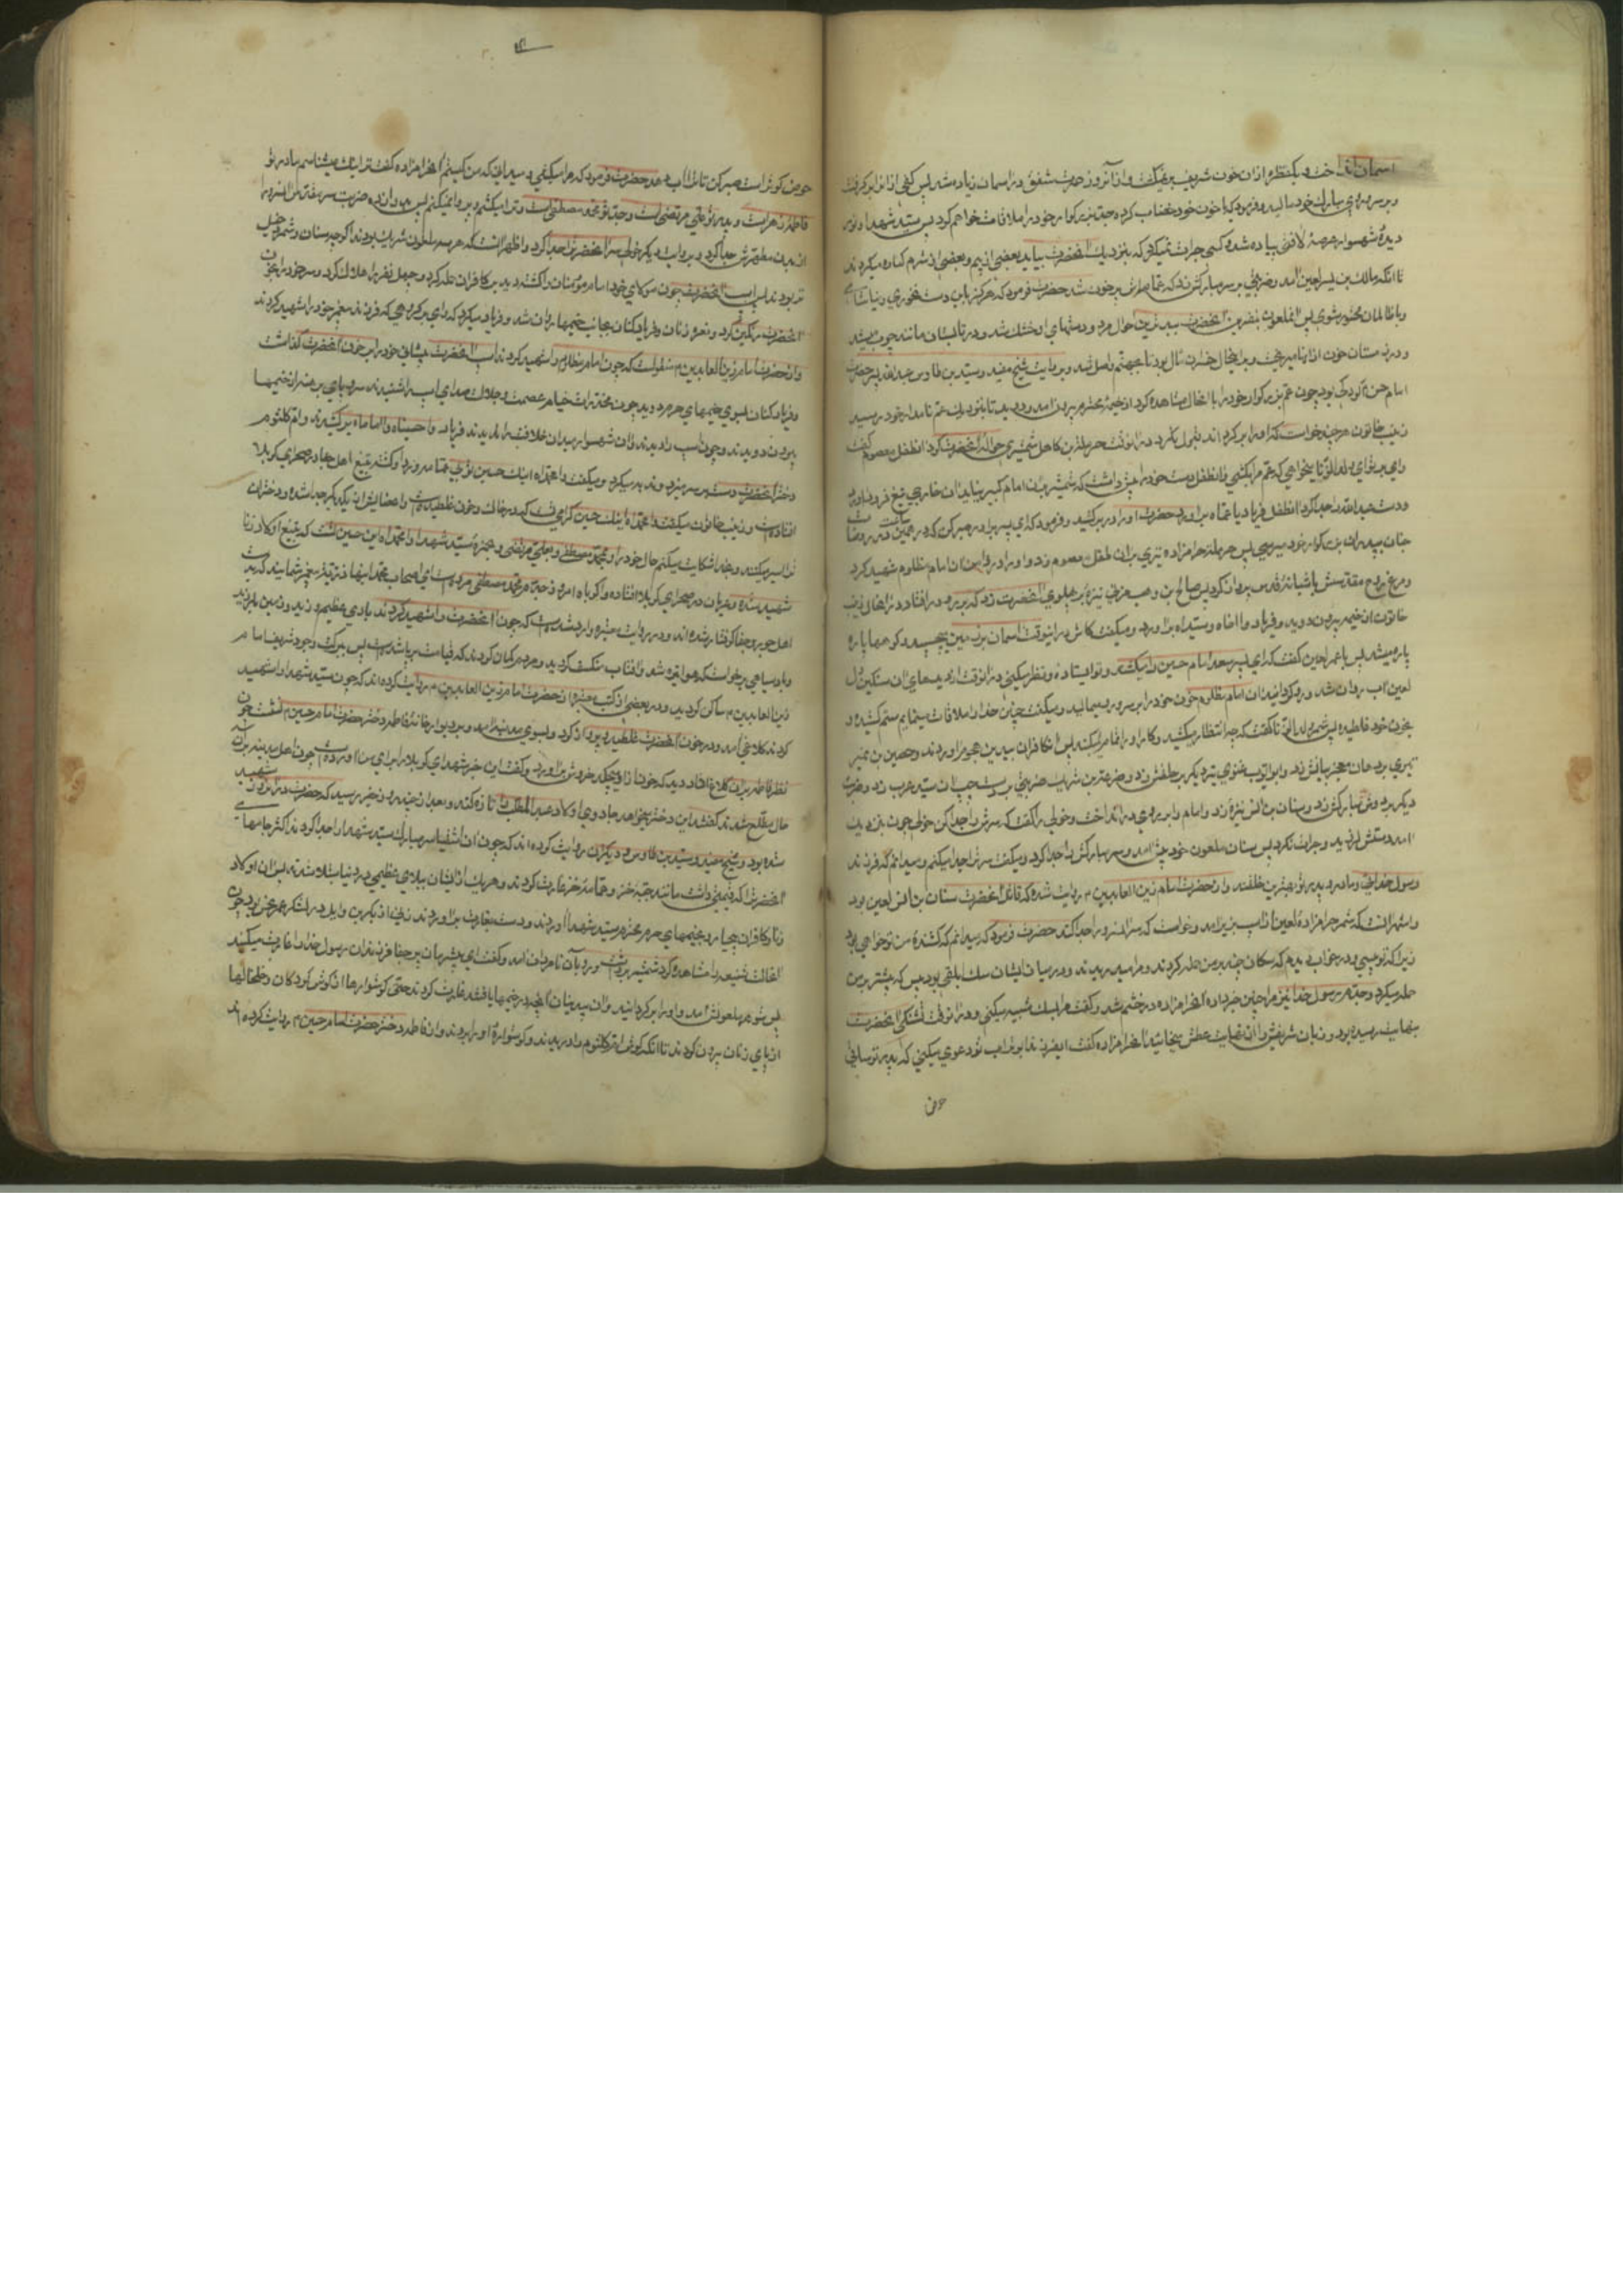 آسمان انداخت و یکقطره از ان خون شریف برنمیگشت و از آنروز حمرت شفق در اسمان زیاده شد پس کفی از ان ابر گرفت
و بر سر و روی مبارك خود مالید و فرمود که با خون خود خضاب کرده جد بزرکوار خود را ملاقات خواهم کرد پس سید شهدا و نور
دیدهٔ شهسوار عرصهٔ لافتی پیاده شد و کسی جرات نمیکرد که بنزدیك آنحضرت بیاید بعضی از بیم و بعضی از شرم کناره میکردند
تا انکه مالك بن یسر لعین امد و ضربتی بر سر مبارکش زد که عمامه اش پر خون شد حضرت فرمود که هرکز باین دست نخوری و نیاشامی
و با ظالمان محشور شوی پس انملعون بنفرین آنحضرت ببدترین احوال مرد و دستهای او خشك شد و در تابستان مانند چوب میشد
و در زمستان خون از انها میریخت و برین حال خسران مال بود تا بجهنم واصل شد و بروایت شیخ مفید و سید بن طاوس عبدالله پسر حضرت
امام حسن که کودکی بود چون عم بزرکوار خود را باانحال مشاهده کرد از خیمهٔ محترم بیرون امد و دوید تا بنزدیك عم نامدار خود رسید
زینب خاتون هرچند خواست که او را برکرداند قبول نکرد در انوقت حرملة بن کاهل شمشیری حوالهٔ آنحضرت کرد انطفل معصوم گفت
وای بر تو ای ولد الزنا میخواهی که عم مرا بکشی و انطفل دست خود را پیش داشت که شمشیر بان امام کبیر نیاید ان خارجی تیغ فرود اورد
و دست عبدالله را جدا کرد انطفل فریاد یا عماه براورد حضرت او را در بر کشید و فرمود که ای پسر برادر صبر کن که در همین ساعت در روضات
جنان بپدران بزرکوار خود میرسی پس حرملهٔ حرامزاده تیری بران طفل معصوم زد و او را در دامن ان امام مظلوم شهید کرد
و مرغ روح مقدسش باشیانهٔ قدس پرواز کرد پس صالح بن وهب مزنی نیزهٔ بر پهلوی آنحضرت زد که برو در افتاد در انحال زینب
خاتون از خیمه بیرون دوید و فریاد وا اخاه و سیداه براورد و میگفت کاش در اینوقت اسمان بر زمین میچسبید و کوهها پاره
پاره میشد پس با عمر لعین گفت که ای پسر سعد امام حسین را میکشند و تو ایستادهٔ و نظر میکنی در انوقت از دیدهای ان سنکین دل
لعین اب روان شد و رو کردانید و ان امام مظلوم خون خود را بر سر و رو میمالید و میکفت چنین خدا را ملاقات مینمایم ستم کشیده و
بخون خود غلطیده پس شمر ولد الزنا گفت که چه انتظار میکشید و کار او را تمام نمیکنید پس ان کافران بیدین هجوم اوردند و حصین بن نمیر
تیری بر دهان معجز بیانش زد و ابو ایوب غنوی تیر دیکر بر حلقش زد و ضرعة بن شریك ضربتی بر دست چپ ان سید عرب زد و ضربت
دیکر بر دوش مبارکش زد و سنان بن انس نیزه زد و امام را بر روی در انداخت و خولی را گفت که سرش را جدا کن خولی چون بنزدیك
امد دستش لرزید و جرات نکرد پس سنان ملعون خود پیش امد و سر مبارکش را جدا کرد و میکفت سرت را جدا میکنم و میدانم که فرزند
رسول خدائی و مادر و پدر تو بهترین خلقند و از حضرت امام زین العابدین م روایت شده که قاتل آنحضرت سنان بن انس لعین بود
و اشهر انست که شمر حرامزادهٔ لعین از اسب بزیر امد و خواست که سر انسرور را جدا کند حضرت فرمود که میدانم که کشندهٔ من تو خواهی بود
زیرا که تو پیسی و در خواب دیدم که سکان چند بر من حمله کردند و مرا میدریدند و در میان ایشان سك ابلقی بود پیس که بیشتر بر من
حمله میکرد و جدم رسول خدا نیز مرا چنین خبر داده آنحرامزاده در خشم شد و گفت مرا بسك تشبیه میکنی و در انوقت تشنکی آنحضرت
بنهایت رسیده بود و زبان شریفش را از نهایت عطش میخائید آنحرامزاده گفت ای فرزند ابوتراب تو دعوی میکنی که پدر تو ساقی
حوض
حوض کوثر است صبر کن تا ترا اب دهد حضرت فرمود که مرا میکشی و میدانی که من کیستم آنحرامزاده گفت ترا نیك میشناسم مادر تو
فاطمهٔ زهراست و پدر تو علی مرتضی است و جد تو محمد مصطفی است و ترا میکشم و پروا نمیکنم پس بدوازده ضربت سر مقدس انسرور را
از بدن مطهرش جدا کرد و بروایت دیکر خولی سر آنحضرت را جدا کرد و اظهر انست که هر سه ملعون شریك بودند اکرچه سنان و شمر دخیل
تر بودند پس اسب آنحضرت چون مولای خود امام مؤمنان را کشته دید بر کافران حمله کرد و چهل نفر را هلاك کرد و سر خود را بخون
آنحضرت رنکین کرد و نعره زنان و فریاد کنان بجانب خیمها روان شد و فریاد میکرد که وای بر کروهی که فرزند پیغمبر خود را شهید کردند
و از حضرت امام زین العابدین م منقولست که چون امام مظلوم را شهید کردند اسب آنحضرت پیشانی خود را بر خون آنحضرت گذاشت
و فریاد کنان بسوی خیمهای حرم دوید چون مخدرات خیام عصمت و جلالت صدای اسب را شنیدند سر و پای برهنه از خیمها
بیرون دویدند و چون اسب را دیدند و ان شهسوار میدان خلافت را ندیدند فریاد وا حسیناه وا اماماه برکشیدند و ام کلثوم
دختر آنحضرت دست بر سر میزد و ندبه میکرد و میکفت وا محمداه اینك حسین تو بی عمامه و ردا و کشته بتیغ اهل جفا در صحرای کربلا
افتادست و زینب خاتون میکفت وا محمداه اینك حسین کرامی تست که در خاك و خون غلطیدست و اعضایش از یکدیکر جدا شده و دختران
ترا اسیر میکنند و بخدا شکایت میکنم حال خود را و بمحمد مصطفی و بعلی مرتضی و بحمزهٔ سید شهدا وا محمداه این حسین تست که بتیغ اولاد زنا
شهید شده و عریان در صحرای کربلا افتاده و اکرباه امروز جدم محمد مصطفی مردست ای اصحاب محمد اینها ذریهٔ پیغمبر شمایند که بدست
اهل جور و جفا کرفتار شده اند و در روایت معتبره وارد شدست که چون آنحضرت را شهید کردند بادی عظیم وزید و زمین بلرزید
و باد سیاهی برخواست که هوا تیره شد و افتاب منکسف گردید و مردم کمان کردند که قیامت برپا شدست پس ببرکت وجود شریف امام
زین العابدین م ساکن کردید و در بعضی از کتب معتبره از حضرت امام زین العابدین م روایت کرده اند که چون سید شهدا را شهید
کردند کلاغی امد و در خون آنحضرت غلطید و پرواز کرد و بسوی مدینه امد و بر دیوار خانهٔ فاطمه دختر حضرت امام حسین م نشست چون
نظر فاطمه بر ان کلاغ افتاد دید که خون از او میچکد خروش براورد و گفت این خبر شهدای کربلا را برای من اوردست چون اهل مدینه بر ان
حال مطلع شدند کفتند این دختر میخواهد جادوی اولاد عبد المطلب را تازه کند و بعد از چند روز خبر رسید که حضرت در انروز شهید
شده بود و شیخ مفید و سید بن طاوس و دیکران روایت کرده اند که چون ان اشقیا سر مبارك سید شهدا را جدا کردند اکثر جامهای
آنحضرت را که قیمتی داشت مانند جبهٔ خز و عمامهٔ خز غارت کردند و هر یك از ایشان ببلای عظیمی در دنیا مبتلا شدند پس ان اولاد
زنا و کافران بیحیا رو بخیمهای حرم محترم سید شهدا اوردند و دست بغارت براوردند زنی از بکر بن وایل در لشکر عمر نحس بود چون
انحالت شنیعه را مشاهده کرد شمشیر برداشت و رو بان نامردان امد و گفت ای بیشرمان پر جفا فرزندان رسول خدا را غارت میکنید
پس شوهر ملعونش امد و او را برکردانید و ان بیدینان آنچه در خیمها یافتند غارت کردند حتی کوشوارها از کوش کودکان و خلخالها
از پای زنان بیرون کردند تا انکه کوش ام کلثوم را دریدند و کوشوارهٔ او را بردند و از فاطمه دختر حضرت امام حسین م روایت کرده اند